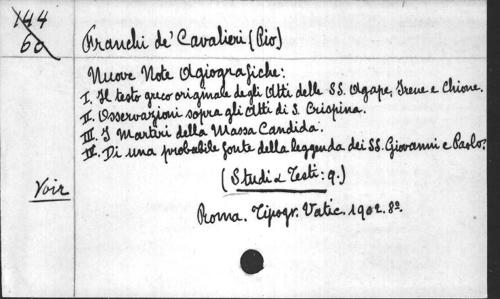 144
60
Franchi de' Cavalieri (Pio)
Nuove Note Agiografiche:
I. Il testo greco originale degli Atti delle SS. Agape, Irene e Chione.
II. Osservazioni sopra gli Atti di S. Crispina.
III. I Martiri della Massa Candida.
IV. Di una probabile fonte della leggenda dei SS. Giovanni e Paolo.
Voir
(Studi e Testi: 9.)
Roma. Tipogr. Vatic. 1902. 8º.